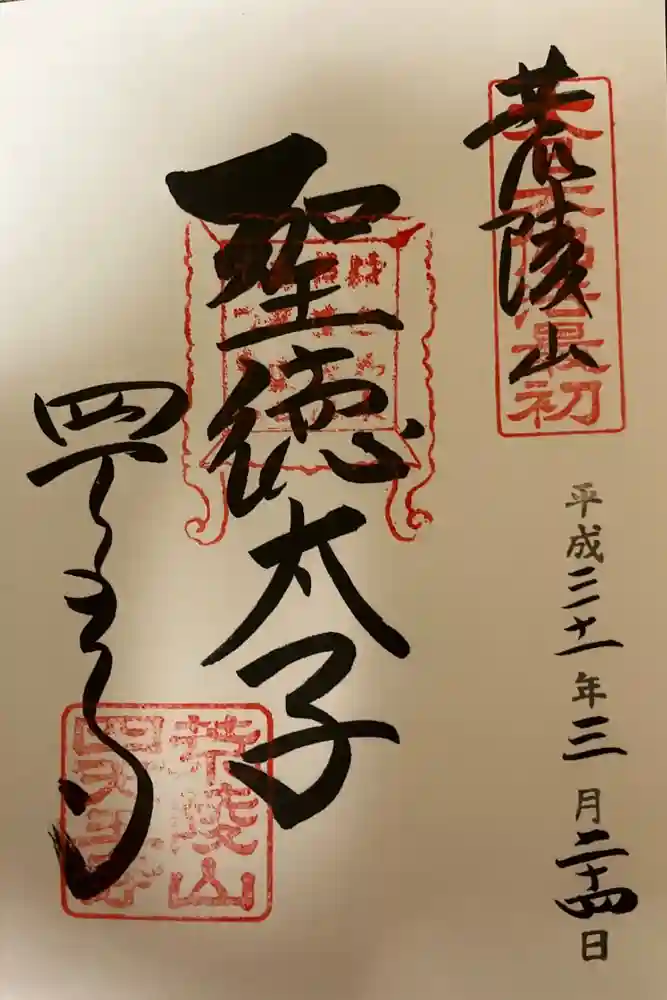 荒陵山
最初
聖徳太子
四天王寺
荒陵山
四天王寺
平成三十一年三月二十四日